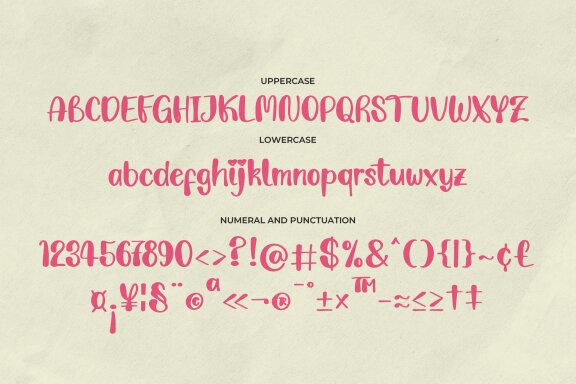 UPPERCASE
ABCDEFGHIJKLMNOPQRSTUVWXYZ
LOWERCASE
abcdefghijklmnopqrstuwxyz
NUMERAL AND PUNCTUATION
1234567890<>?!@#$%&^(){|}~¢€
¤¡¥¦§¨©ª«¬®¯°±×™-≈≤≥†‡